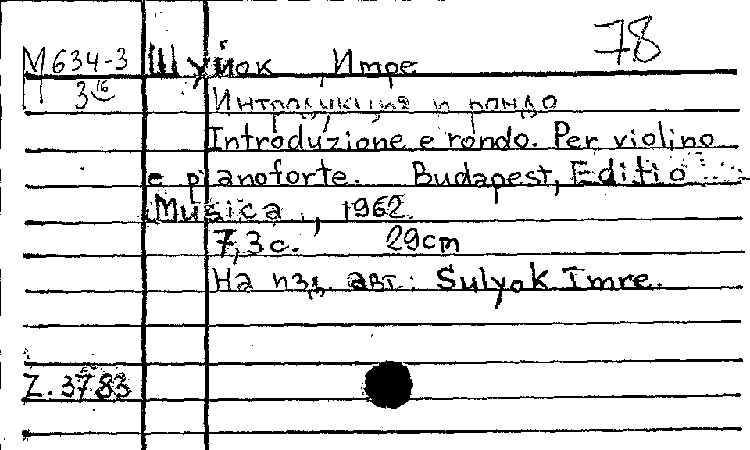 78
М634-3 Шуйок, Имре
3 16 Интродукция и рондо
Introduzione e rondo. Per violino
e pianoforte. Budapest, Editio
Musica, 1962.
7,3с. 29cm
На изд. авт.: Sulyok Imre.
Z.3783